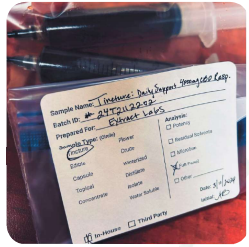 Sample Name: Tincture: Daily Support 4000mg CBD Rasp.
Batch ID: # 24T2112202
Prepared For: Extract Labs
Sample Type: (Circle)
Tincture Flower
Edible Crude
Capsule Winterized
Topical Distillate
Concentrate Isolate
Water Soluble
Analysis:
Potency
Residual Solvents
Microbial
Full Panel
Other
Date:
Initial:
In-House Third Party